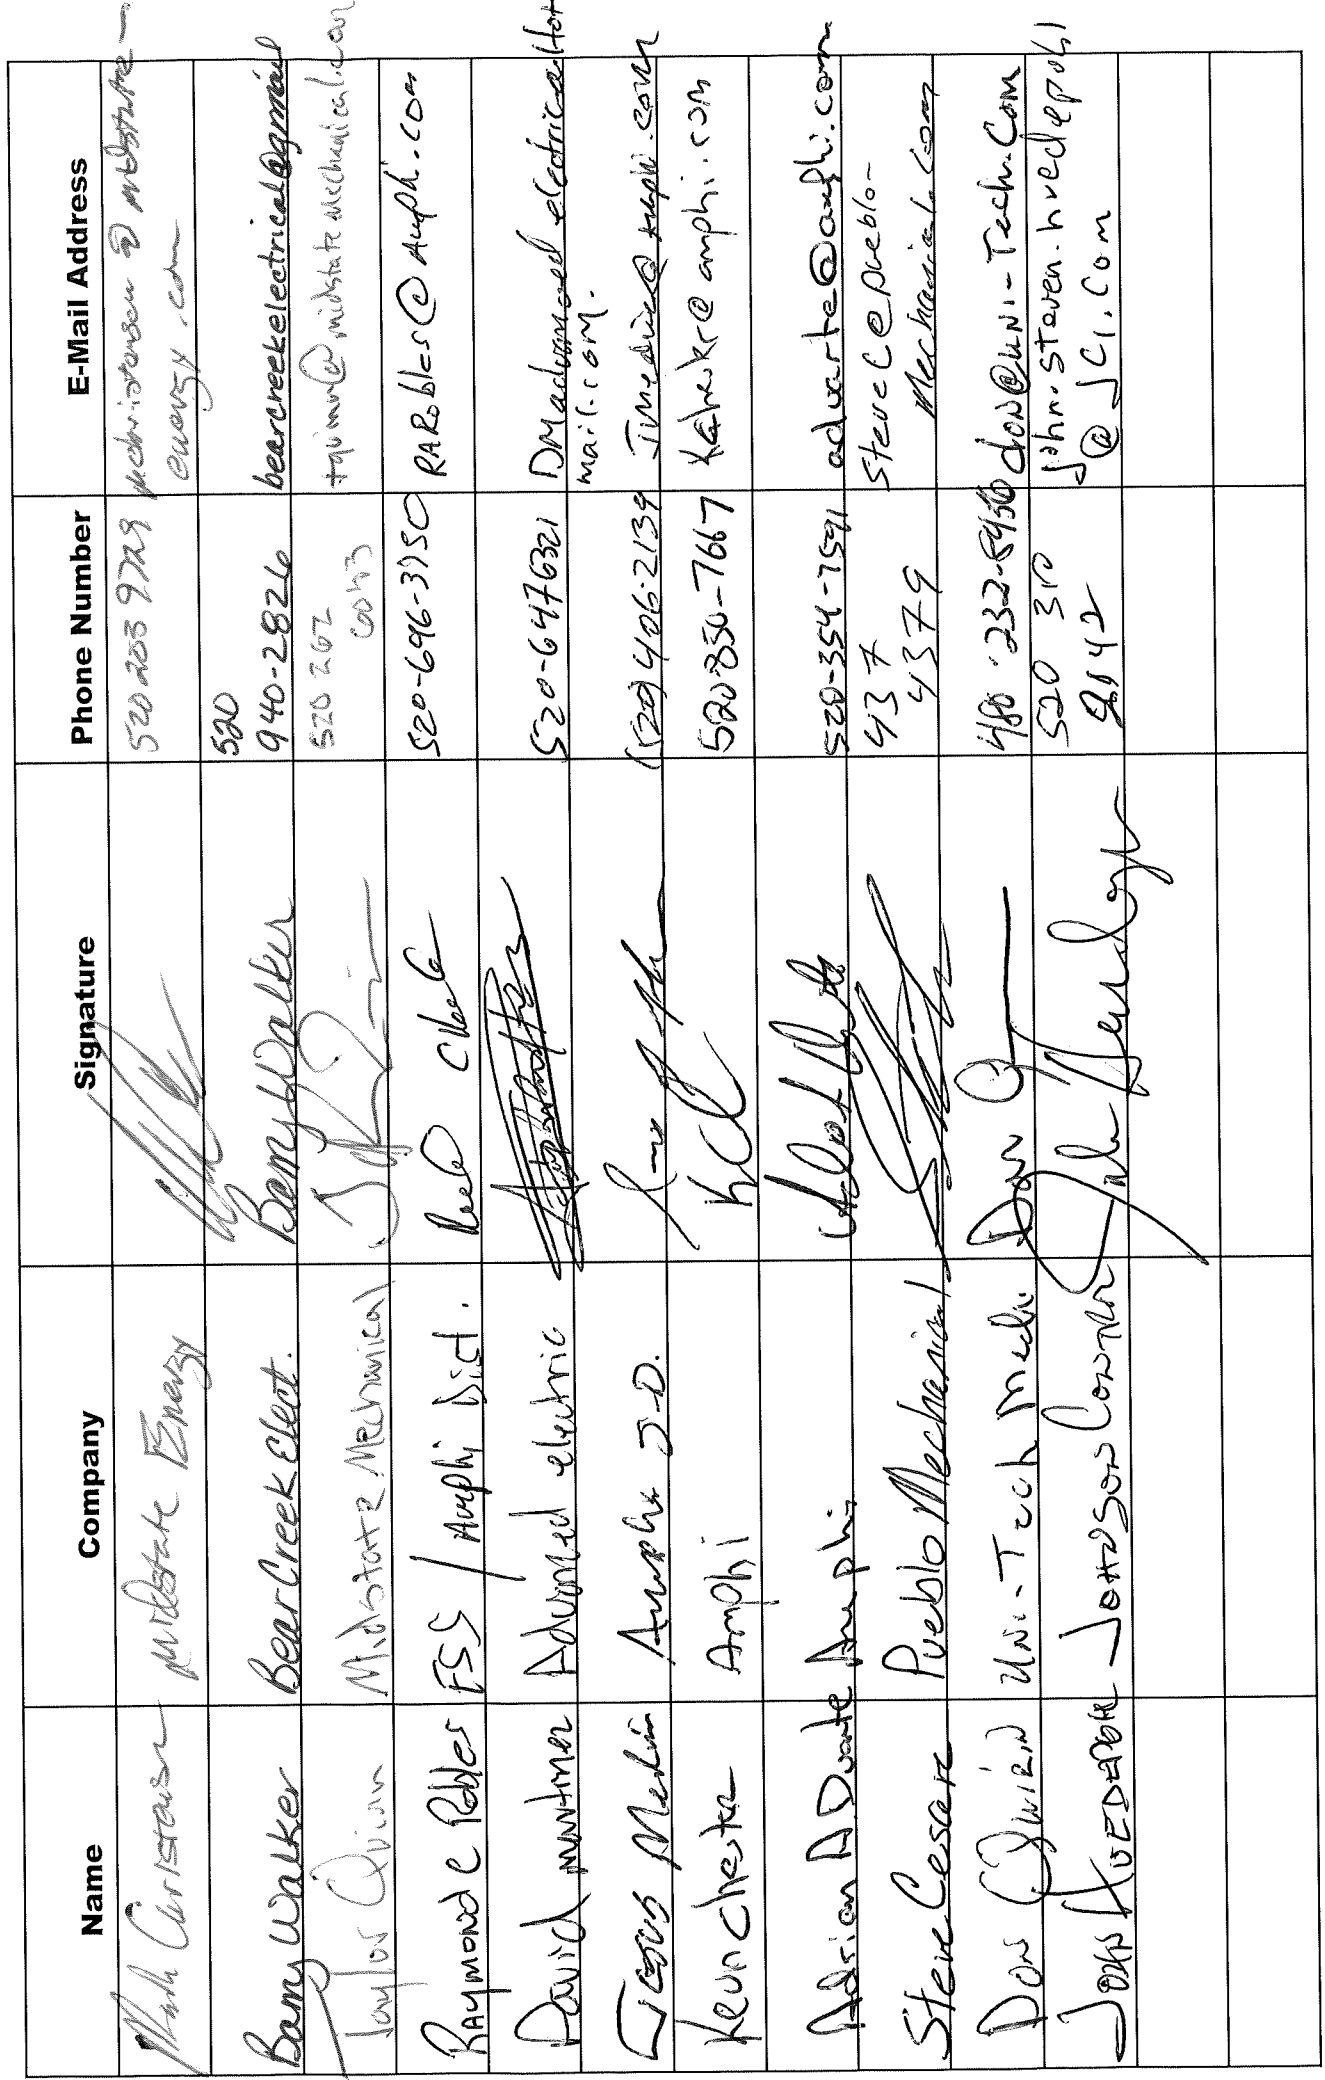 Name Company Signature Phone Number E-Mail Address
Mark Christensen Midstate Energy 520 203 9729 @ midstate-
energy.com
Barry Walker Bear Creek Elect. Barry Walker 520
940-2826 bearcreekelectrical@gmail
Taylor Quinn Midstate Mechanical 520 262
0043 tquinn@midstatemechanical.com
Raymond C Robles FSS / Amphi Dist. 520-696-3750 RARobles@Amphi.com
David Advanced electric 520-6476321 electrical@hot
mail.com.
Medina Amphi S.D. (520) 406-2139 @amphi.com
Kevin Chester Amphi KC 520-850-7667 @amphi.com
Adrian A Duarte Amphi. 520-354-7591 aduarte@amphi.com
Steve Cesare Pueblo Mechanical 437
4379 Steve C@pueblo-
Mechanical.com
Don Quirin Uni-Tech Mech Don Q 480-232-8456 don@uni-Tech.Com
John Huedepohl Johnson Controls 520 310
2142 John.steven.huedepohl
@JCI.Com